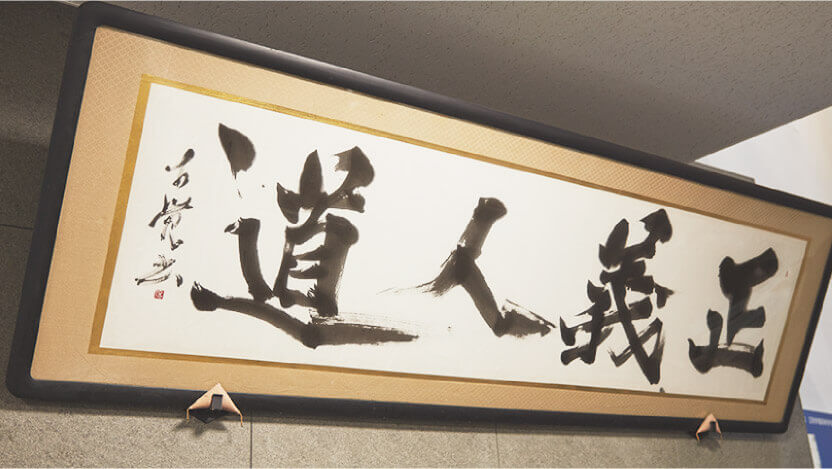 正義人道